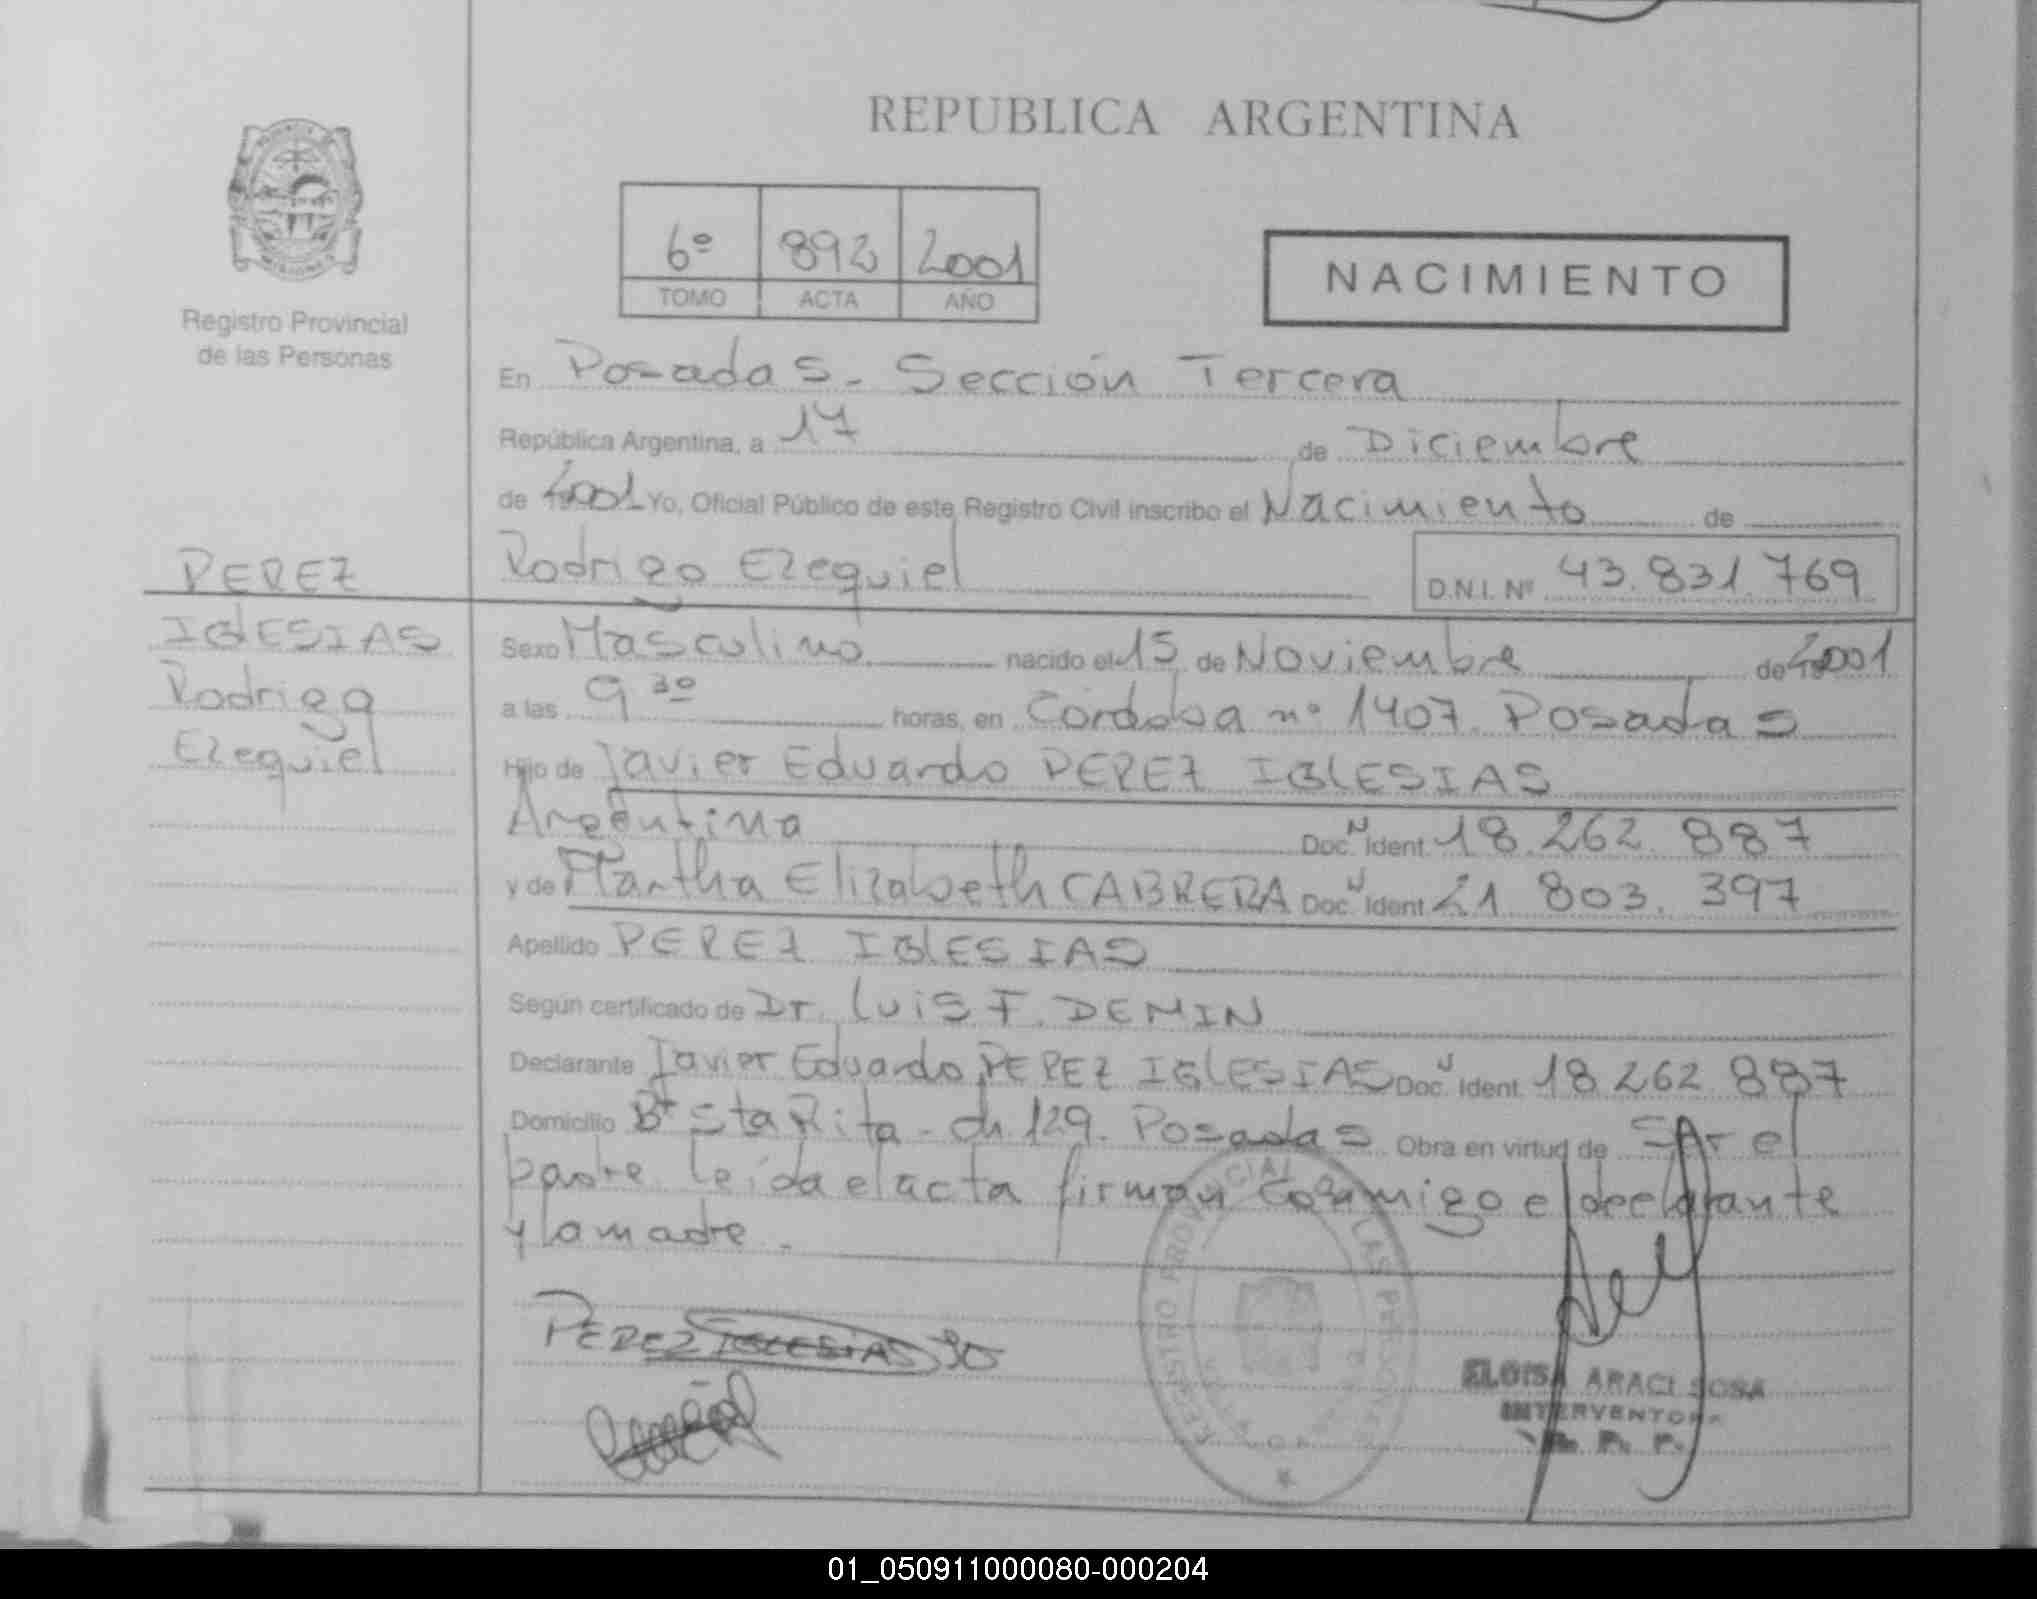 REPUBLICA ARGENTINA
MISIONES
Registro Provincial
de las Personas
6º 892 2001
TOMO ACTA AÑO
NACIMIENTO
En Posadas - Sección Tercera
República Argentina, a 17 de Diciembre
de 2001 Yo, Oficial Público de este Registro Civil inscribo el Nacimiento de
Rodrigo Ezequiel D.N.I. Nº 43.831.769
PEREZ
IGLESIAS
Rodrigo
Ezequiel
Sexo Masculino nacido el 15 de Noviembre de 2001
a las 9 30 horas, en Córdoba nº 1407. Posadas
Hijo de Javier Eduardo PEREZ IGLESIAS
Argentina Doc. Ident. 18.262.887
y de Martha Elizabeth CABRERA Doc. Ident. 21.803.397
Apellido PEREZ IGLESIAS
Según certificado de Dr. Luis F. DEMIN
Declarante Javier Eduardo PEREZ IGLESIAS Doc. Ident. 18.262.887
Domicilio Bº Sta Rita - ch. 129. Posadas Obra en virtud de SAr el
padre. leída el acta firman conmigo el declarante
y la madre.
PEREZ IGLESIAS
REGISTRO PROVINCIAL DE LAS PERSONAS
ELOISA ARACI SOSA
INTERVENTORA
R. P. P.
01_050911000080-000204